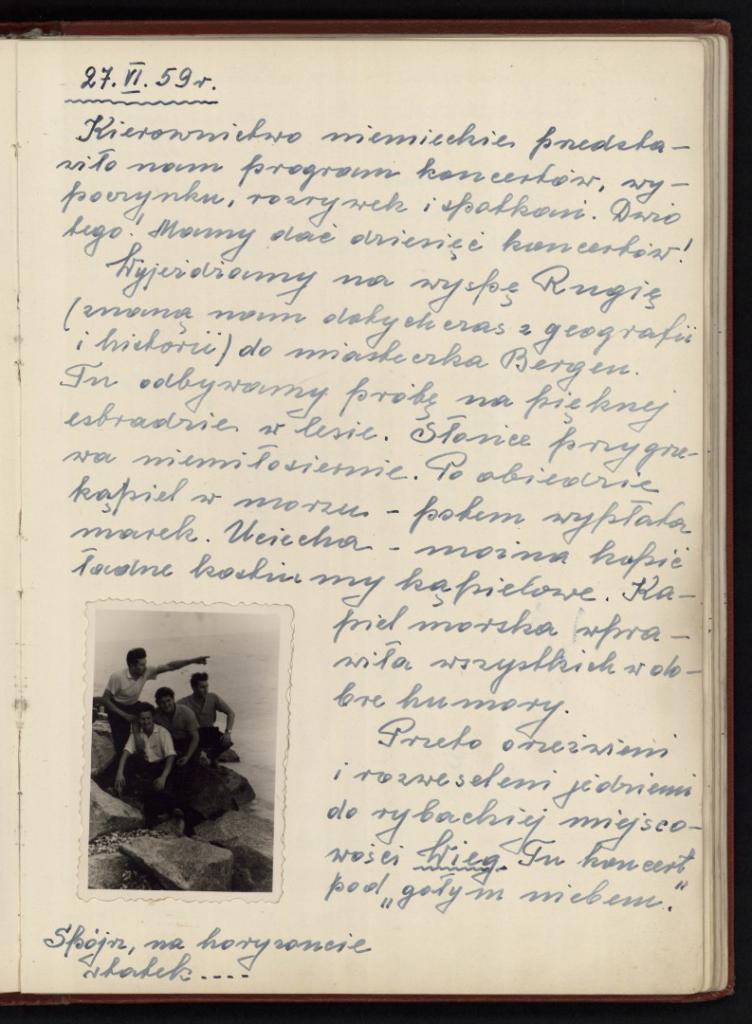 27.VI.59r.
Kierownictwo niemieckie przedsta-
wiło nam program koncertów, wy-
poczynku, rozrywek i spotkań. Dużo
tego! Mamy dać dziesięć koncertów!
Wyjeżdżamy na wyspę Rugię
(znaną nam dotychczas z geografii
i historii) do miasteczka Bergen.
Tu odbywamy próbę na pięknej
estradzie w lesie. Słońce przygrze-
wa niemiłosiernie. Po obiedzie
kąpiel w morzu - potem wypłata
marek. Uciecha - można kupić
ładne kostiumy kąpielowe. Ką-
piel morska wpra-
wiła wszystkich w do-
bre humory.
Przeto orzeźwieni
i rozweseleni jedziemy
do rybackiej miejsco-
wości Wieg. Tu koncert
pod „gołym niebem."
Spójrz, na horyzoncie
statek....